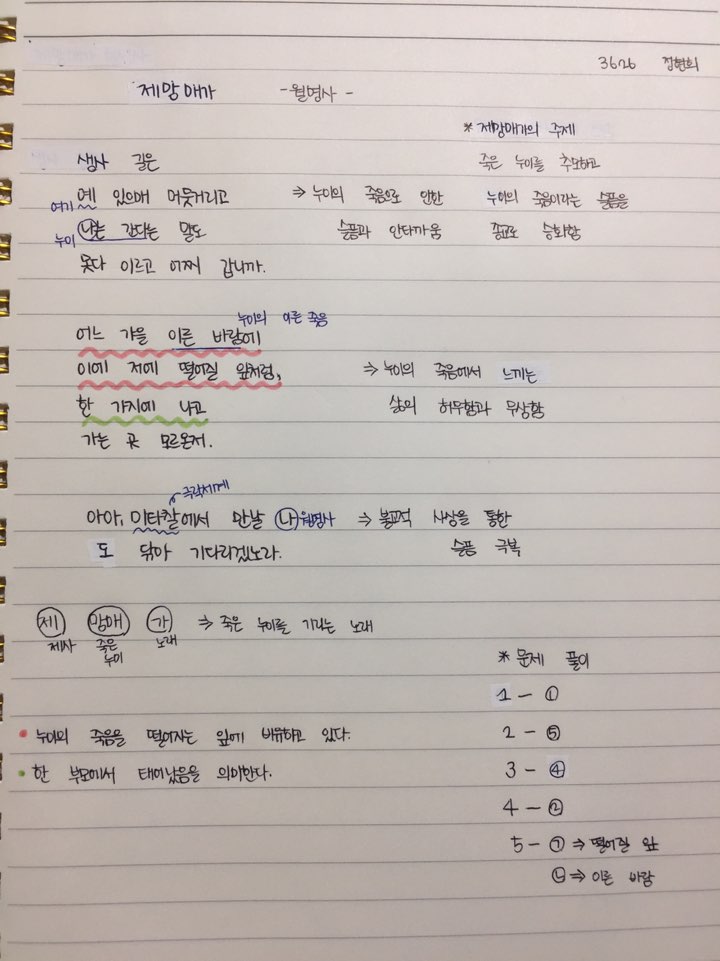 3626 정현희
제망매가 -월명사-
* 제망매가의 주제
죽은 누이를 추모하고
누이의 죽음이라는 슬픔을
종교로 승화함
생사 길은
예 있으매 머뭇거리고
여기
나는 간다는 말도
누이
못다 이르고 어찌 갑니까.
⇒ 누이의 죽음으로 인한
슬픔과 안타까움
누이의 이른 죽음
어느 가을 이른 바람에
이에 저에 떨어질 잎처럼,
한 가지에 나고
가는 곳 모르온저.
⇒ 누이의 죽음에서 느끼는
삶의 허무함과 무상함
극락세계
아아, 미타찰에서 만날 나 월명사
도 닦아 기다리겠노라.
⇒ 불교적 사상을 통한
슬픔 극복
제 망매 가 ⇒ 죽은 누이를 기리는 노래
제사 죽은 누이 노래
• 누이의 죽음을 떨어지는 잎에 비유하고 있다.
• 한 부모에서 태어났음을 의미한다.
* 문제 풀이
1 - ①
2 - ⑤
3 - ④
4 - ②
5 - ㉠ ⇒ 떨어질 잎
㉡ ⇒ 이른 바람